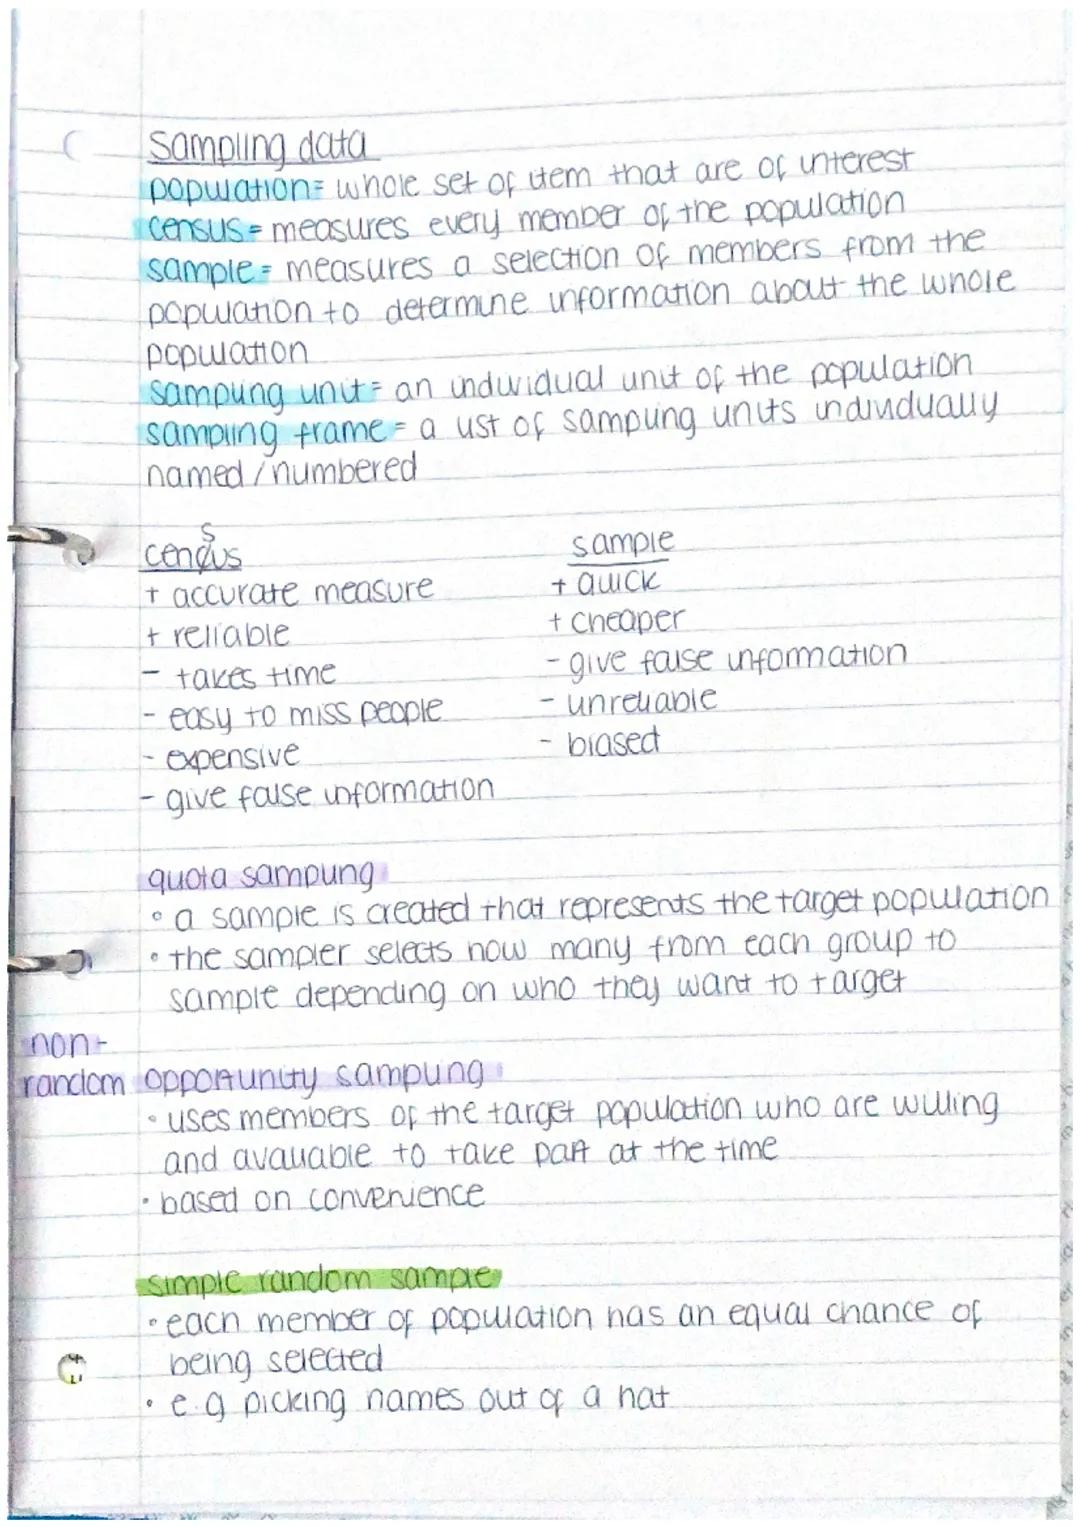 sampling data
population = whole set of item that are of interest
census = measures every member of the population
sample = measures a selection of members from the
population to determine information about the whole
population
sampling unit = an individual unit of the population
sampling frame = a list of sampling units individually
named / numbered
census
+ accurate measure
+ reliable
- takes time
- easy to miss people
- expensive
- give false information
sample
+ quick
+ cheaper
- give false information
- unreliable
- biased
quota sampling
• a sample is created that represents the target population
• the sampler selects how many from each group to
sample depending on who they want to target
non-
random opportunity sampling
• uses members of the target population who are willing
and available to take part at the time
• based on convenience
simple random sample
• each member of population has an equal chance of
being selected
• e.g picking names out of a hat